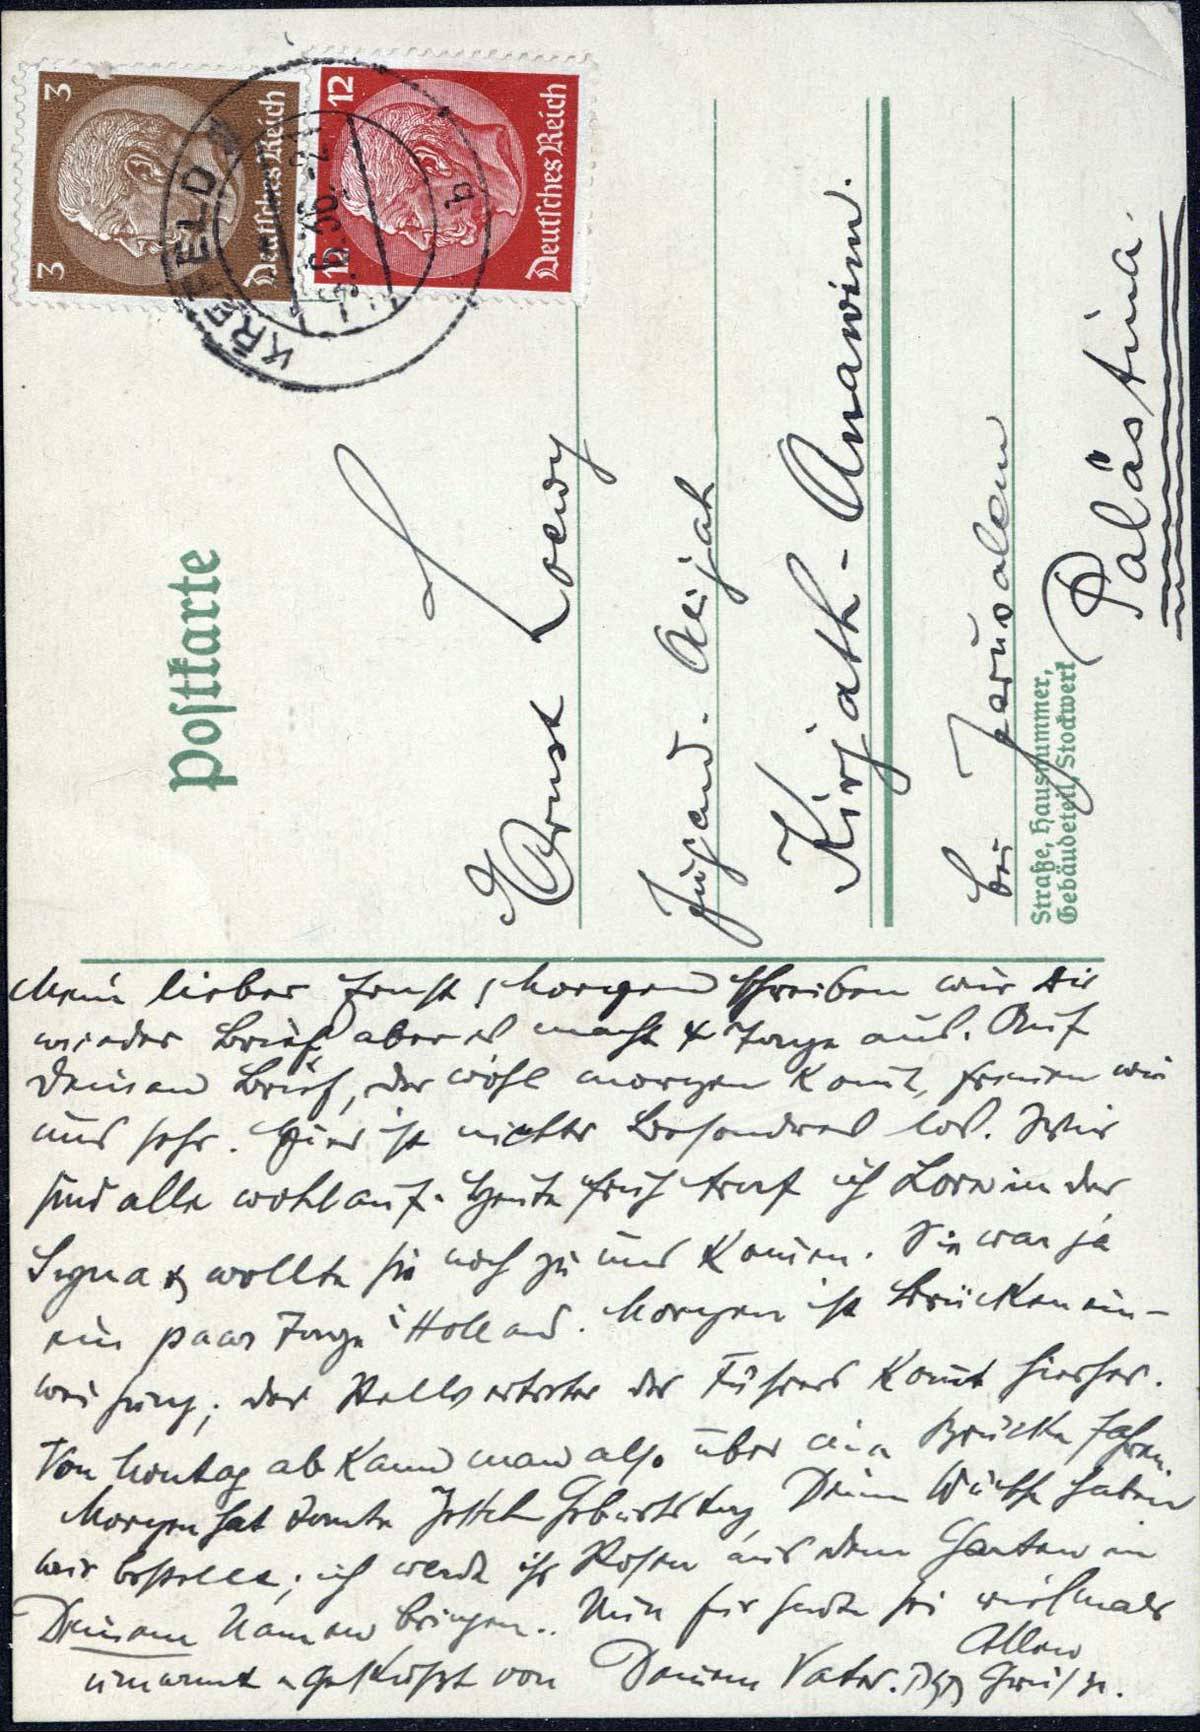 3
3
Deutsches Reich
12
12
Deutsches Reich
KREFELD
6.36.-2
b
Postkarte
Ernst Loewy
Jugend-Alijah
Kirjath-Anawim.
bei Jerusalem
Palästina
Straße, Hausnummer,
Gebäudeteil, Stockwerk
Mein lieber Ernst, Morgen schreiben wir Dir
wieder Brief, aber es macht 4 Tage aus. Auf
Deinen Brief, der wohl morgen komt, freuen wir
uns sehr. Hier ist nichts Besonderes los. Wir
sind alle wohlauf. Heute früh traf ich Lore in der
wollte sie noch zu uns komen. Sie war ja
ein paar Tage i Holland. Morgen ist Brückenein-
weihung; der Stellvertreter des Führers komt hierher.
Von Montag ab kann man also über eine Brücke fahren.
Morgen hat Tante Jettch Geburtstag, Deine Wünsche haben
wir bestellt; ich werde ihr Rosen aus dem Garten in
Deinem Namen bringen.. Nun für heute sei vielmals
umarmt u geküßt von Deinem Vater. Allen
Grüße.